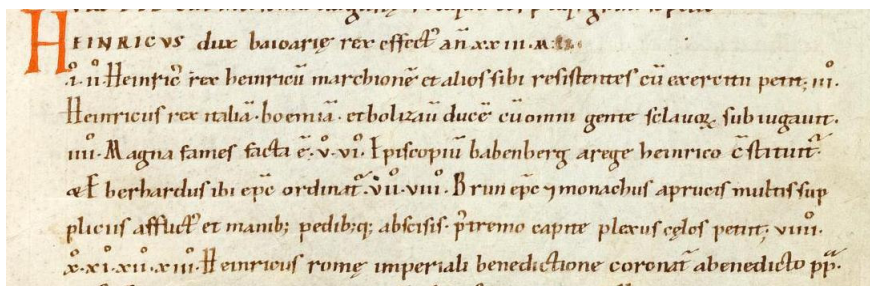 HEINRICVS dux baioarię rex effect᾽ an̄ xxiii. m̄.
i. ii. Heinric᾽ rex heinricū marchionē et alios sibi resistentes cū exercitu petit; iii.
Heinricus rex italiā. boemiā. et bolizaū ducē cū omni gente sclauoꝝ subiugauit.
iiii. Magna fames facta ē. v. vi. Episcopiū babenberg a rege heinrico c̄stituit᾽.
& Eberhardus ibi ep̄c ordinat᾽. vii. viii. Brun ep̄c ⁊ monachus a prucis multis sup
pliciis afflict᾽ et manib; pedib;q; abscisis. p̄tremo capite plexus cęlos petiit; viiii.
x. xi. xii. xiii. Heinricus romę imperiali benedictione coronat᾽ a benedicto pp̄.